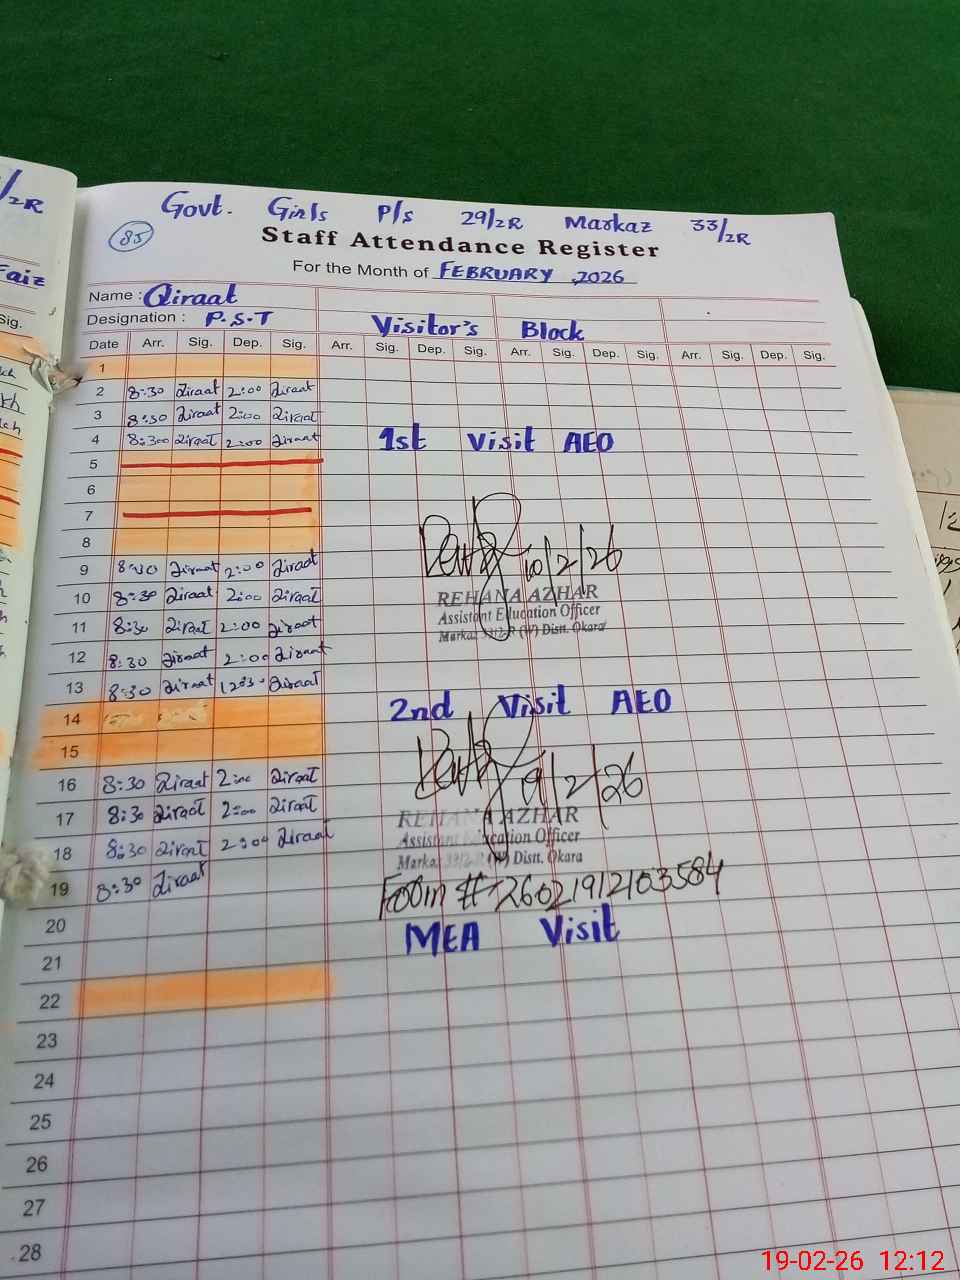 /2R
Faiz
Sig.
Govt. Girls P/S 29/2R Markaz 33/2R
85
Staff Attendance Register
For the Month of FEBRUARY, 2026
Name : Qiraat
Designation : P.S.T
Visitor's Block
Date Arr. Sig. Dep. Sig. Arr. Sig. Dep. Sig. Arr. Sig. Dep. Sig. Arr. Sig. Dep. Sig.
1
2 8:30 Qiraat 2:00 Qiraat
3 8:30 Qiraat 2:00 Qiraat
4 8:300 Qiraat 2:00 Qiraat
1st Visit AEO
5
6
7
8
9 8:30 Qiraat 2:00 Qiraat
10/2/26
10 8:30 Qiraat 2:00 Qiraat
REHANA AZHAR
Assistant Education Officer
11 8:30 Qiraat 2:00 Qiraat
Markaz 33/2.R (W) Distt. Okara
12 8:30 Qiraat 2:00 Qiraat
13 8:30 Qiraat 12:30 Qiraat
2nd Visit AEO
14
15
16 8:30 Qiraat 2:00 Qiraat
19/2/26
17 8:30 Qiraat 2:00 Qiraat
REHANA AZHAR
Assistant Education Officer
18 8:30 Qiraat 2:00 Qiraat
Markaz 33/2.R (W) Distt. Okara
19 8:30 Qiraat
Form #-26021912103584
MEA Visit
20
21
22
23
24
25
26
27
28
19-02-26 12:12